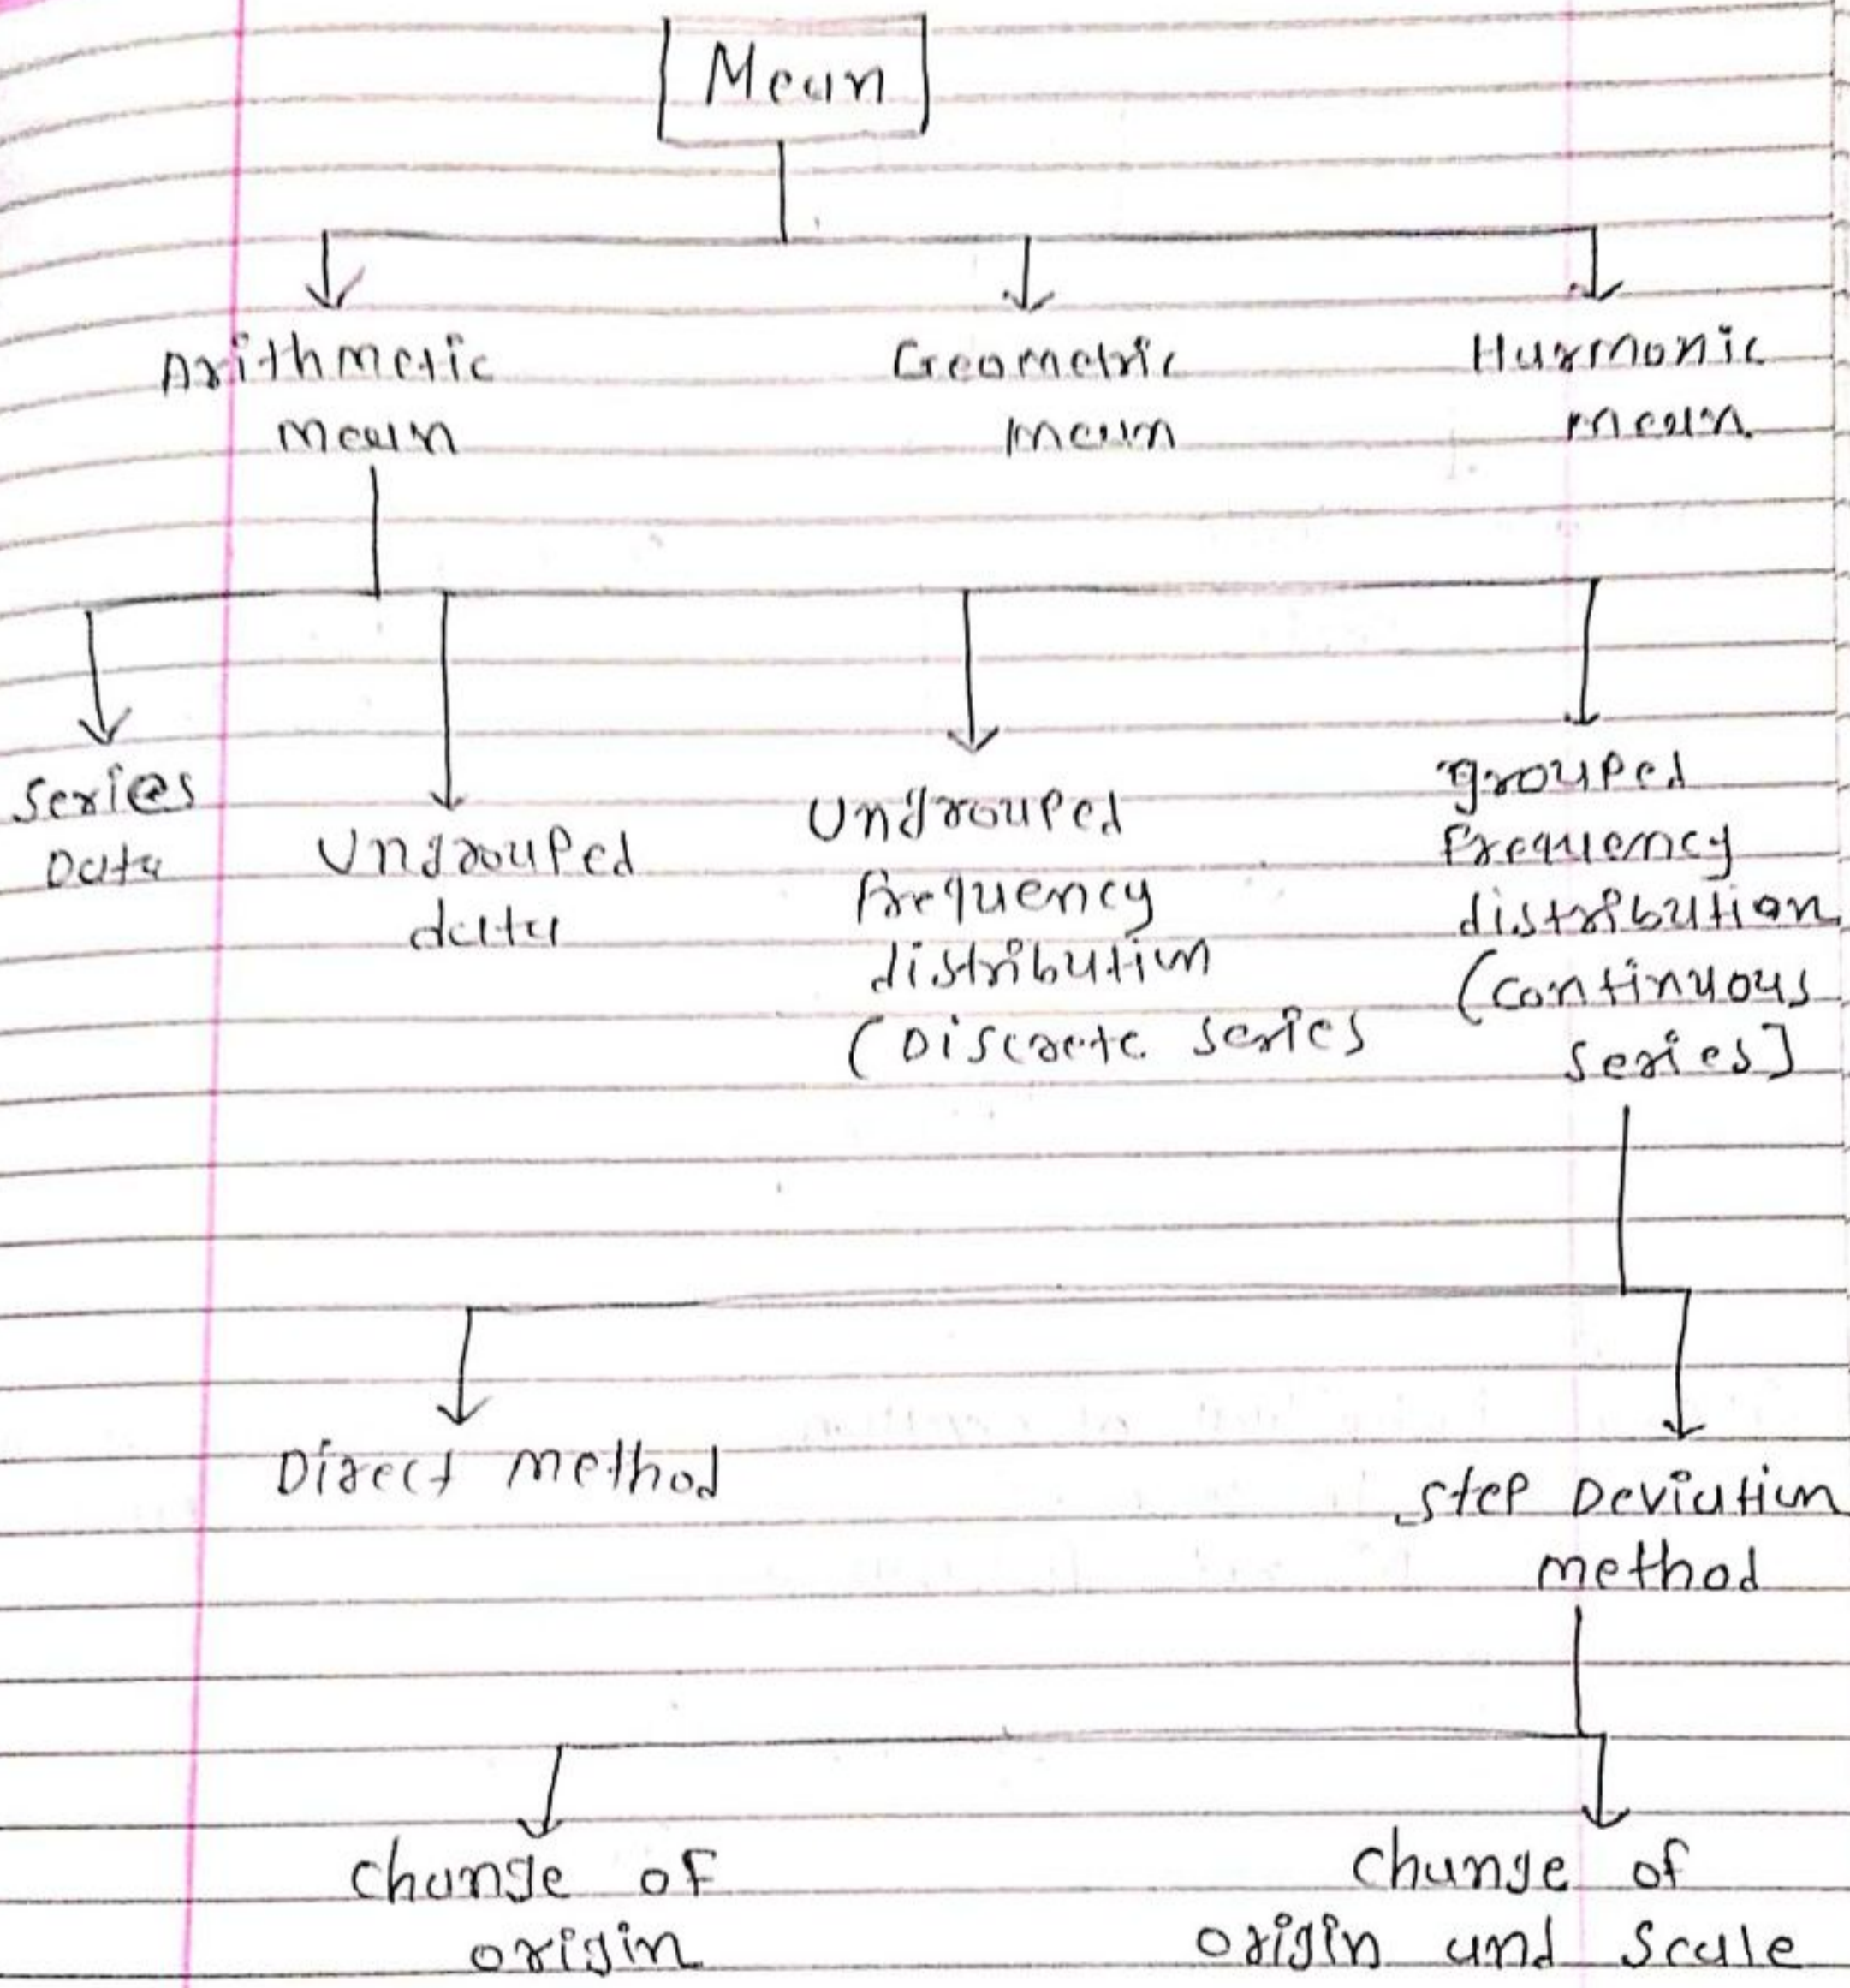 Mean
Arithmetic
mean
Geometric
mean
Harmonic
mean
Series
Data
Ungrouped
data
Ungrouped
frequency
distribution
(Discrete series
grouped
frequency
distribution
(continuous
series]
Direct method
Step Deviation
method
change of
origin
change of
origin and scale